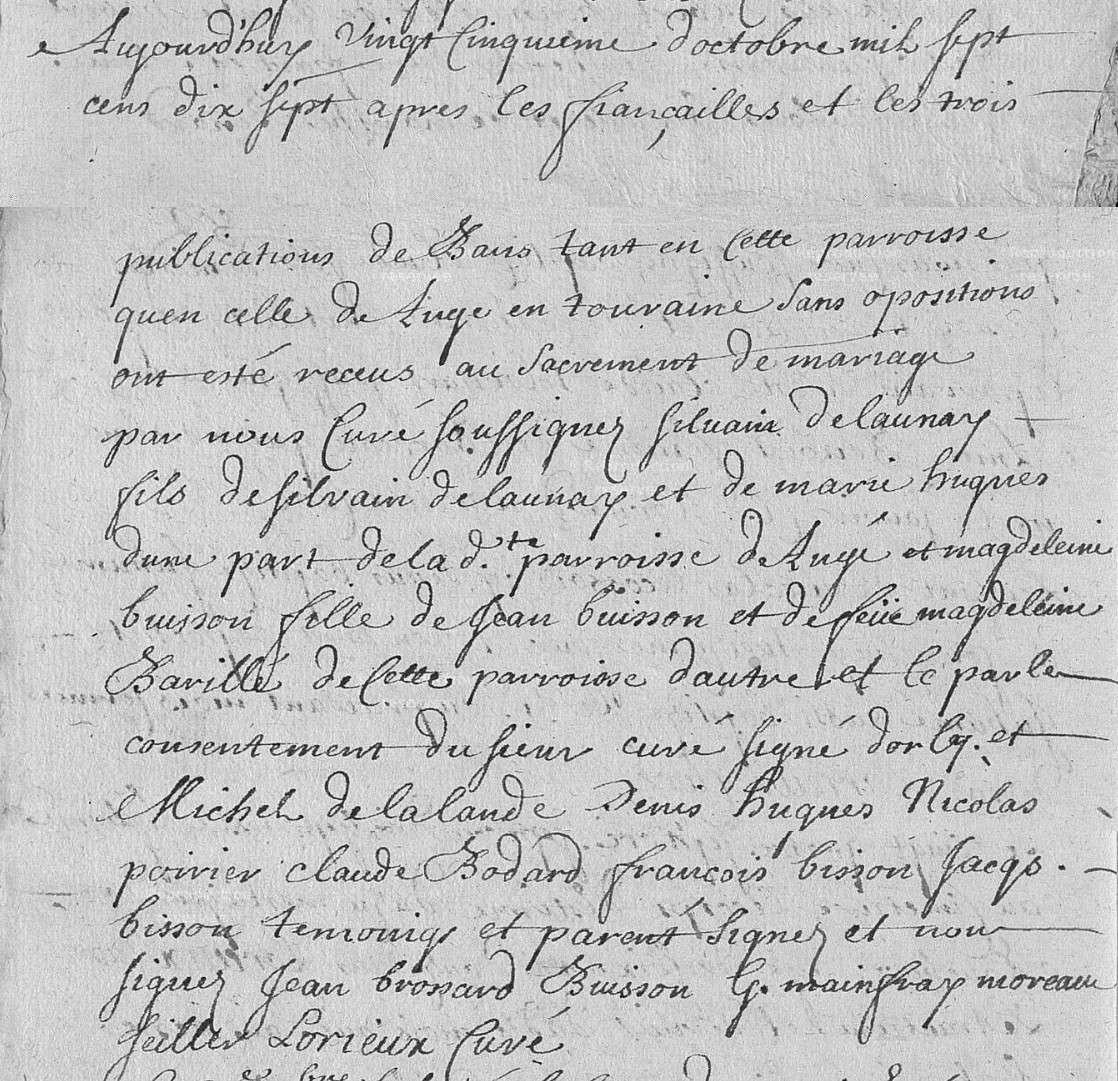 Aujourd'huy vingt cinquieme d'octobre mil sept
cens dix sept apres les fiançailles et les trois
publications de Bans tant en cette parroisse
quen celle de Auge en touraine sans opositions
ont esté receus au sacrement de mariage
par nous Curé soussignez silvain Delaunay
fils de silvain delaunay et de marie hugues
dune part de la d.te parroisse de Augé et magdeleine
buisson fille de Jean buisson et de feüe magdeleine
Barillé de cette parroisse dautre et le par le
consentement du sieur curé signé et
Michel de lalande Denis hugues Nicolas
poirier claude Bodard françois bisson Jacqs.
bisson temoings et parent signez et non
signez Jean brossard Buisson G. mainfray moreau
seiller Lorieux Curé